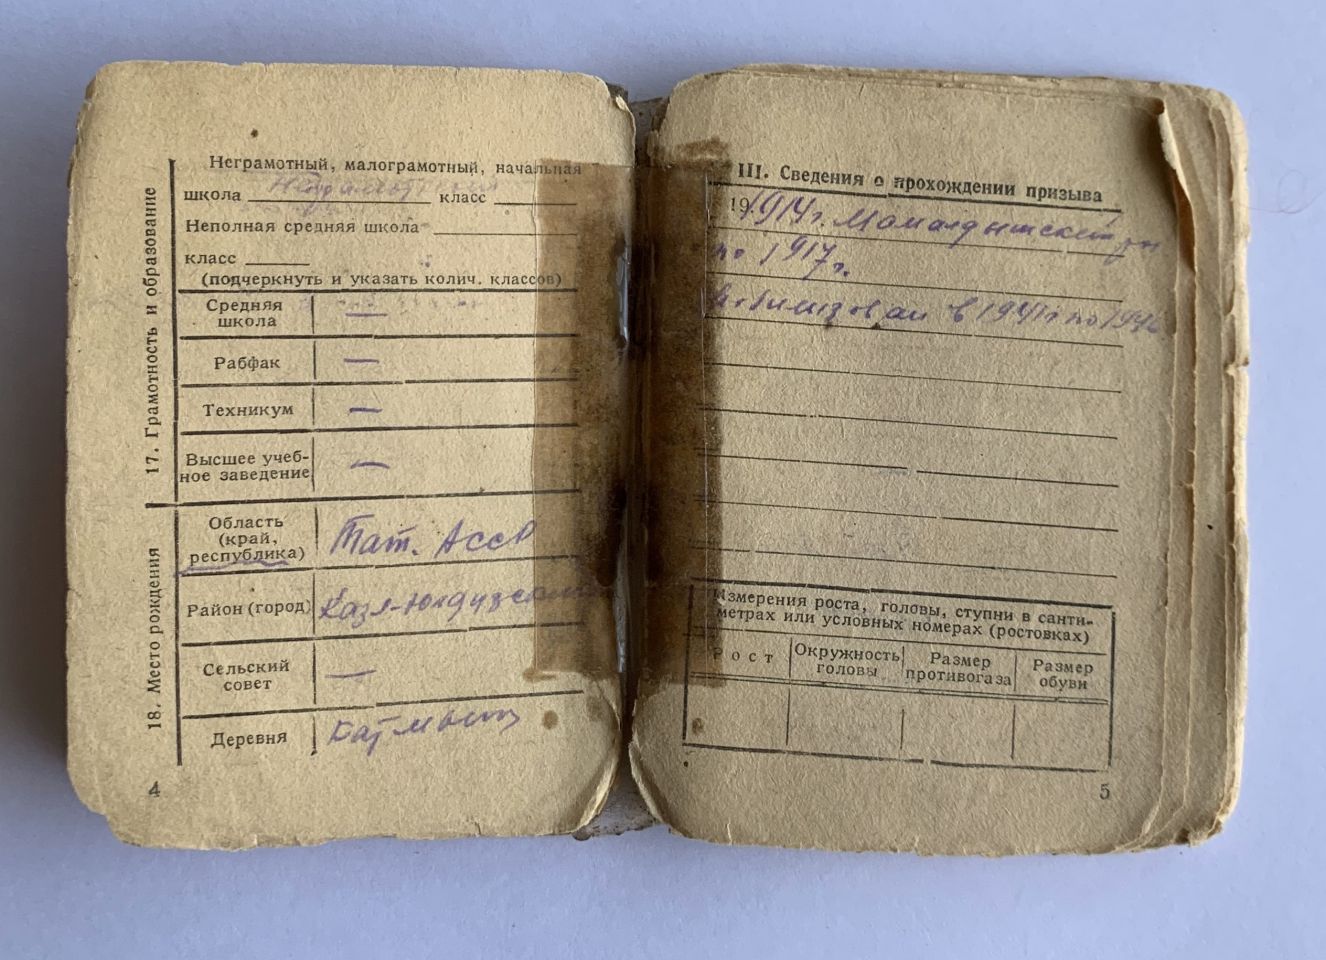 17. Грамотность и образование
Неграмотный, малограмотный, начальная
школа Неграмотный класс
Неполная средняя школа
класс
(подчеркнуть и указать колич. классов)
Средняя —
школа
Рабфак —
Техникум —
Высшее учеб- —
ное заведение
18. Место рождения
Область Тат. АССР
(край,
республика)
Район (город) Кзл-Юлдузский
Сельский —
совет
Деревня Катмыш
4
III. Сведения о прохождении призыва
19 1914 г. Мамадышский
по 1917 г.
Мобилизован в 1941 г. по 1946
Измерения роста, головы, ступни в санти-
метрах или условных номерах (ростовках)
Рост
Окружность
головы
Размер
противогаза
Размер
обуви
5